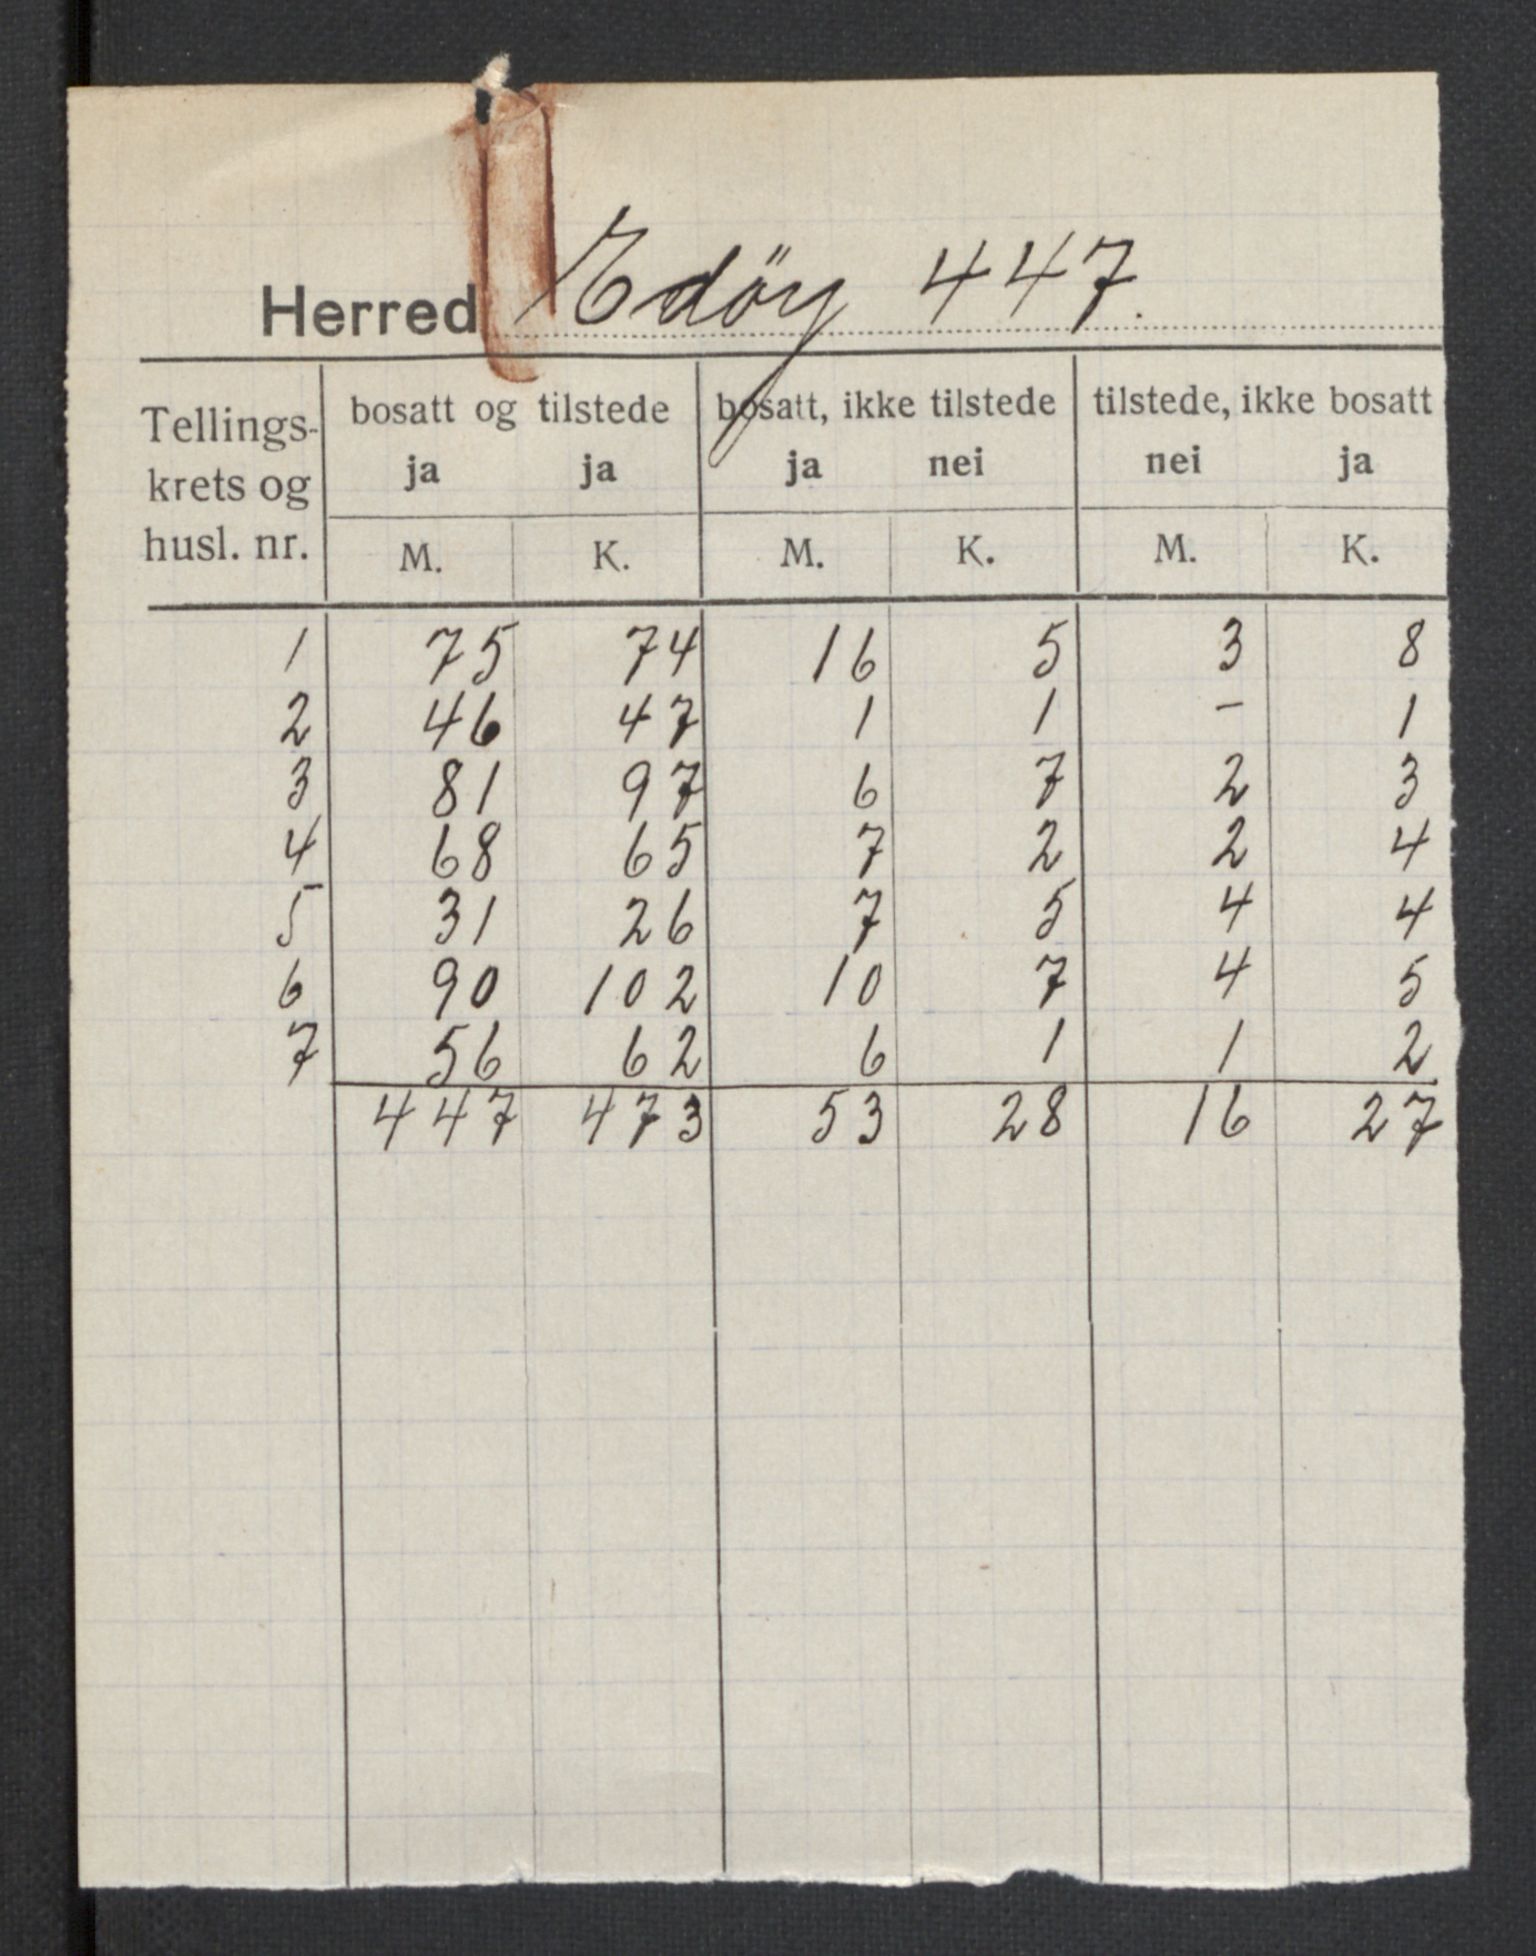 Herred Edöy 447.
Tellings- krets og husl. nr. | bosatt og tilstede | bosatt, ikke tilstede | tilstede, ikke bosatt
ja ja | ja nei | nei ja
M. K. | M. K. | M. K.
1 75 74 16 5 3 8
2 46 47 1 1 - 1
3 81 97 6 7 2 3
4 68 65 7 2 2 4
5 31 26 7 5 4 4
6 90 102 10 7 4 5
7 56 62 6 1 1 2
447 473 53 28 16 27